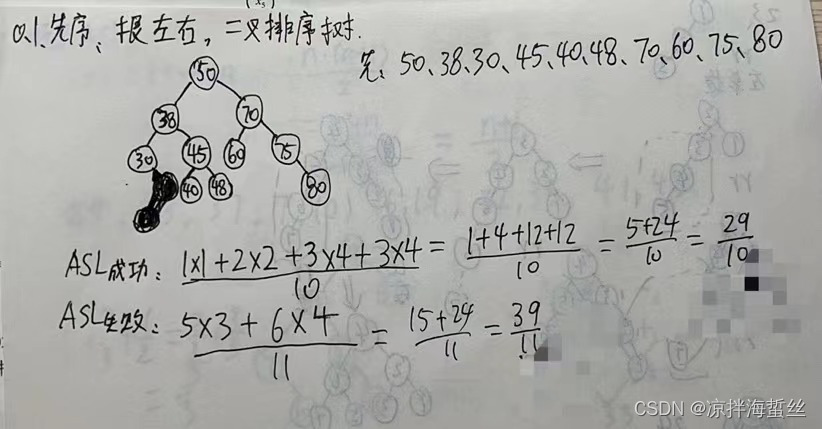 (x₅)
01.先序、根左右，二叉排序树.
先、50、38、30、45、40、48、70、60、75、80
50
38 70
30 45 60 75
40 48 80
ASL成功：1×1+2×2+3×4+3×4/10 = 1+4+12+12/10 = 5+24/10 = 29/10
ASL失败：5×3+6×4/11 = 15+24/11 = 39/11
CSDN @凉拌海蜇丝